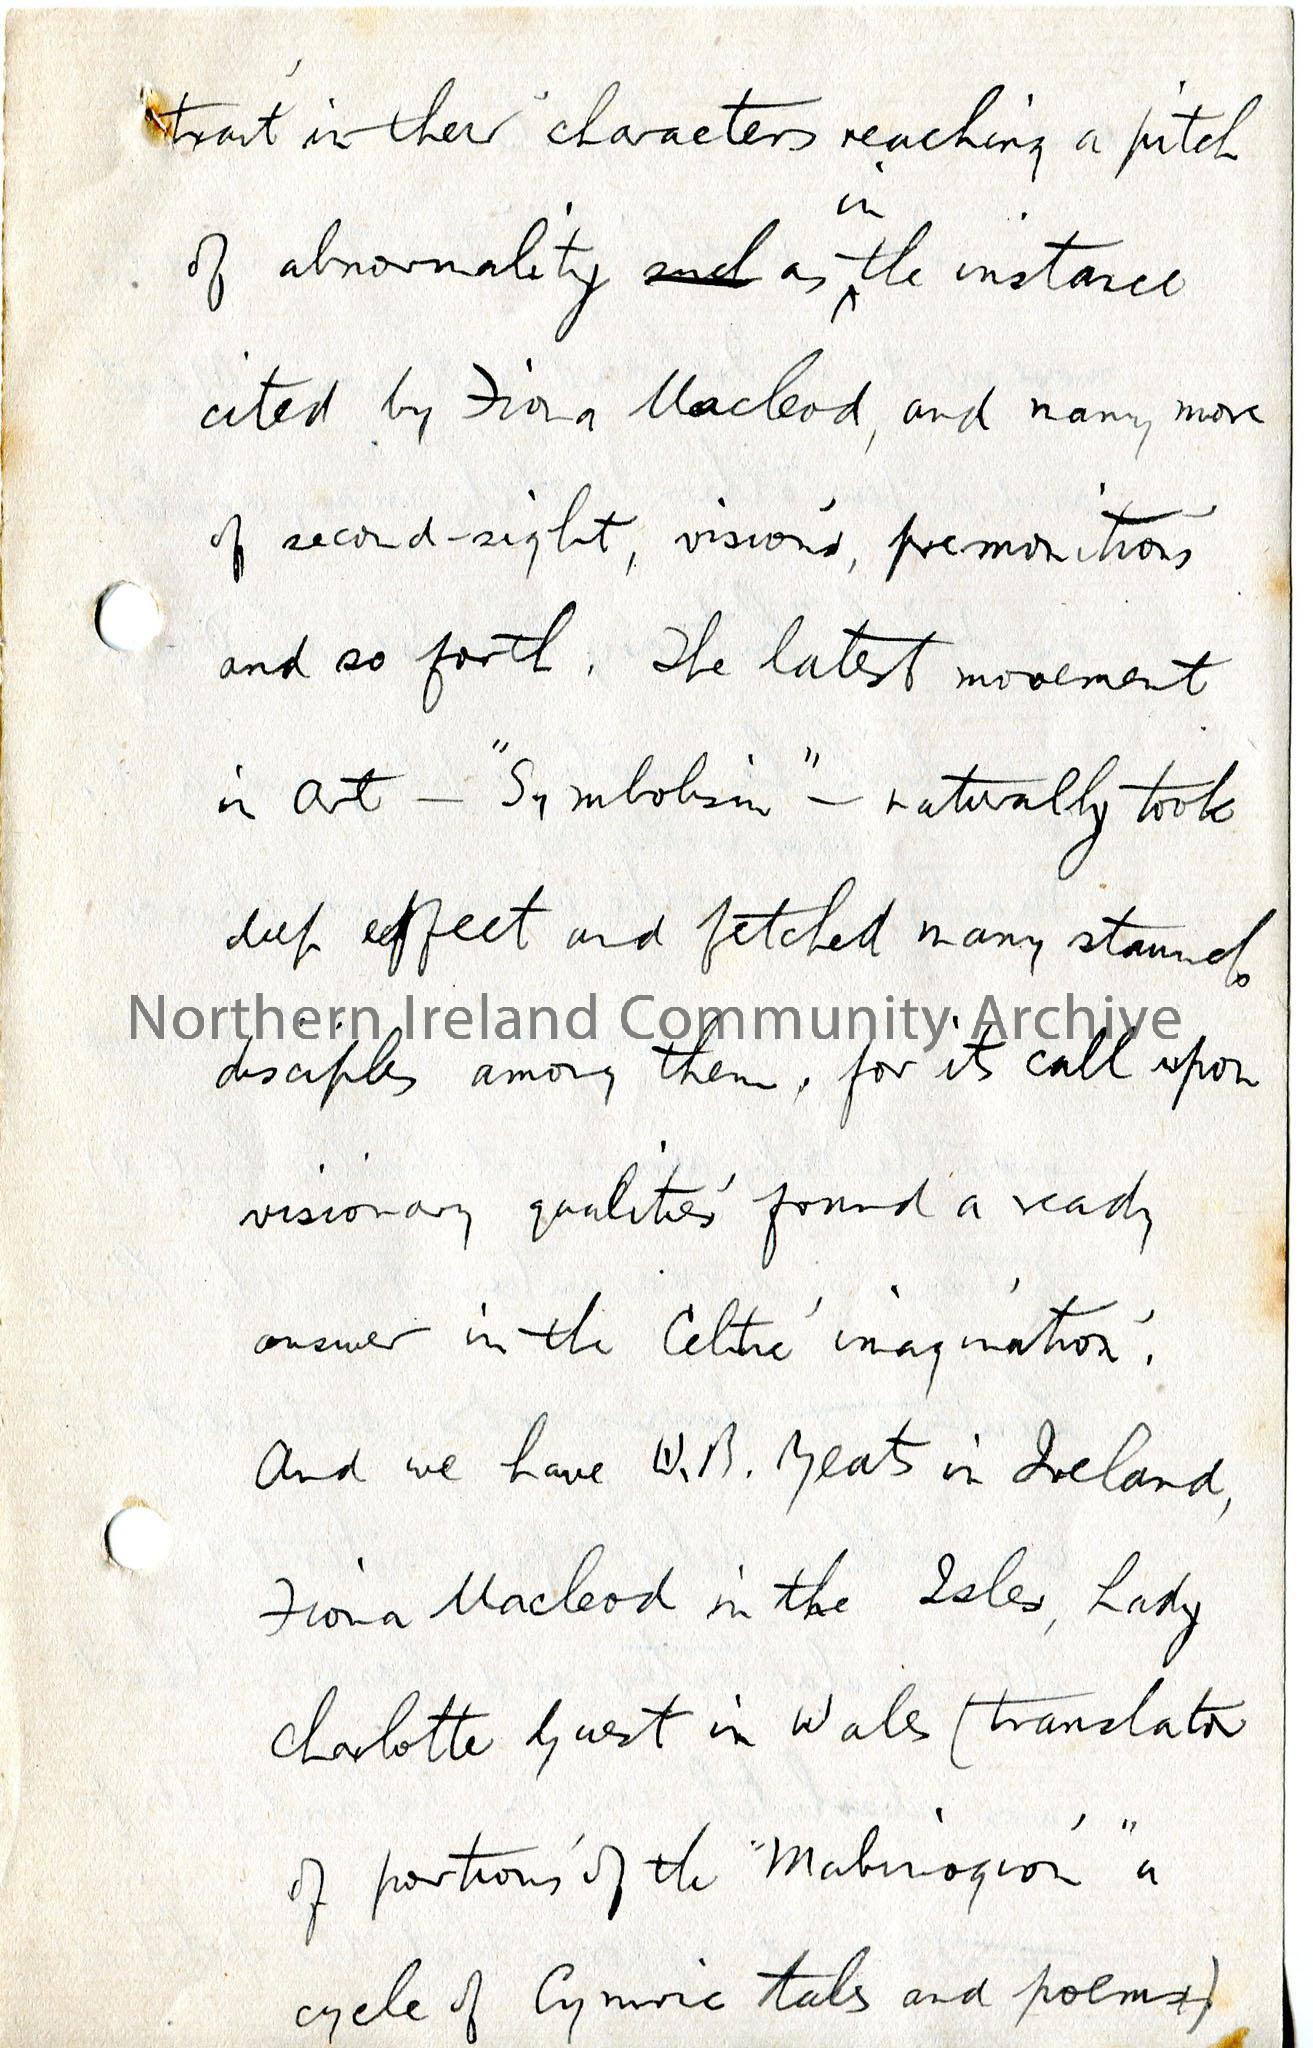 trait in their characters reaching a pitch
in
of abnormality such as the instance
cited by Fiona Macleod, and many more
of second-sight, visions, premonitions
and so forth. The latest movement
in Art — "Symbolism" — naturally took
deep effect and fetched many staunch
Northern Ireland Community Archive
disciples among them, for its call upon
visionary qualities found a ready
answer in the Celtic imagination.
And we have W.B. Yeats in Ireland,
Fiona Macleod in the Isles, Lady
Charlotte Guest in Wales (translator
of portions of the "Mabinogion" a
cycle of Cymric tales and poems)